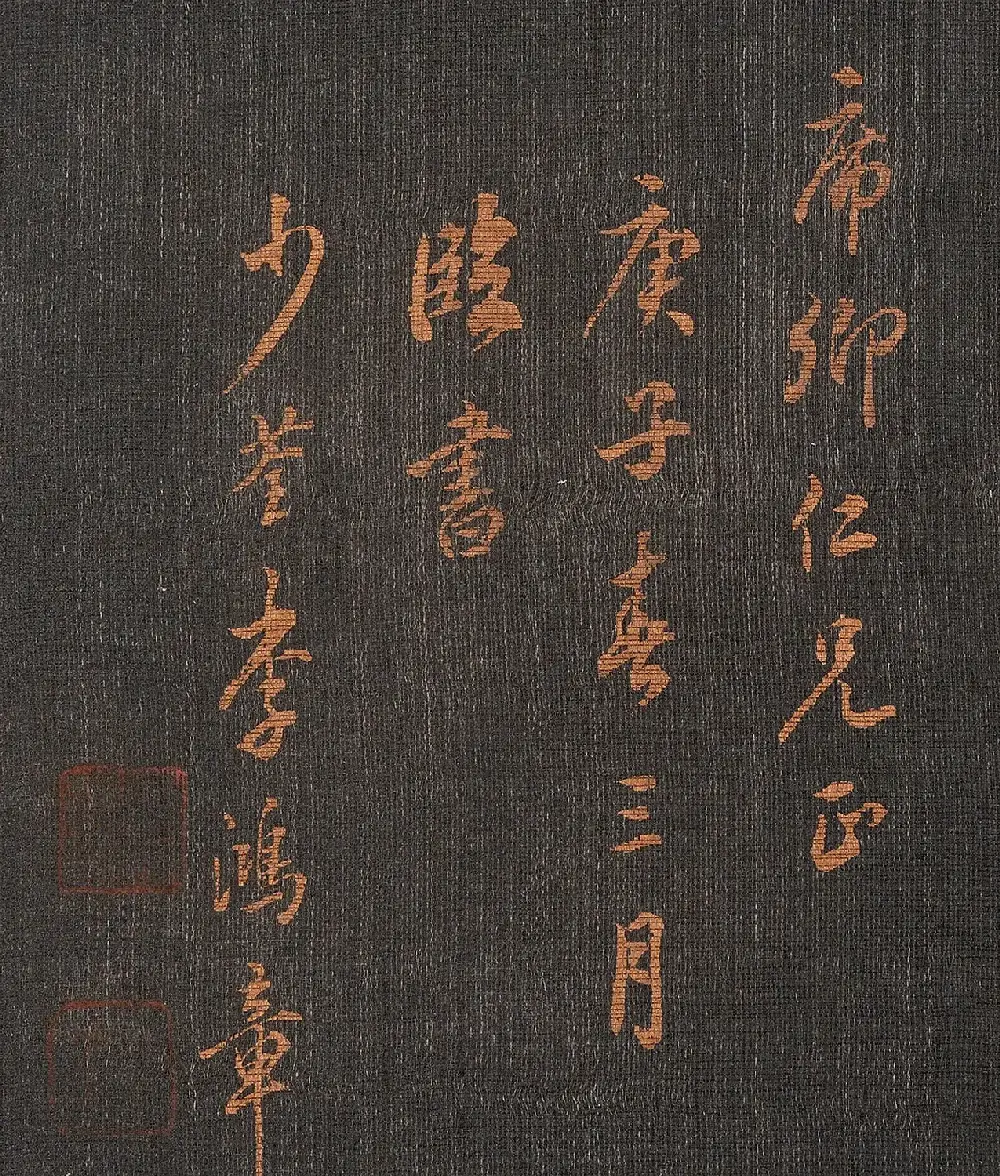 席卿仁兄正
庚子春三月
臨書
少荃李鴻章